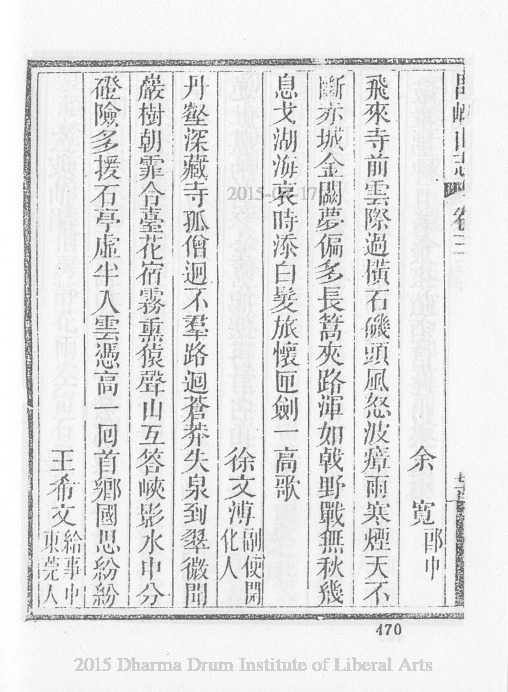 禺峽山志
卷三
余寬郎中
飛來寺前雲際過橫石磯頭風怒波瘴雨寒煙天不
斷赤城金闕夢偏多長篙夾路渾如戟野戰無秋幾
息戈湖海衰時添白髮旅懷匣劍一高歌
徐文溥副使開化人
丹壑深藏寺孤僧迥不羣路迴蒼莽失泉到翠微聞
巖樹朝霏合臺花宿霧熏猿聲山互答峽影水中分
磴險多援石亭虛半入雲憑高一回首鄉國思紛紛
王希文給事中東莞人
470
2015-04-17
2015 Dharma Drum Institute of Liberal Arts